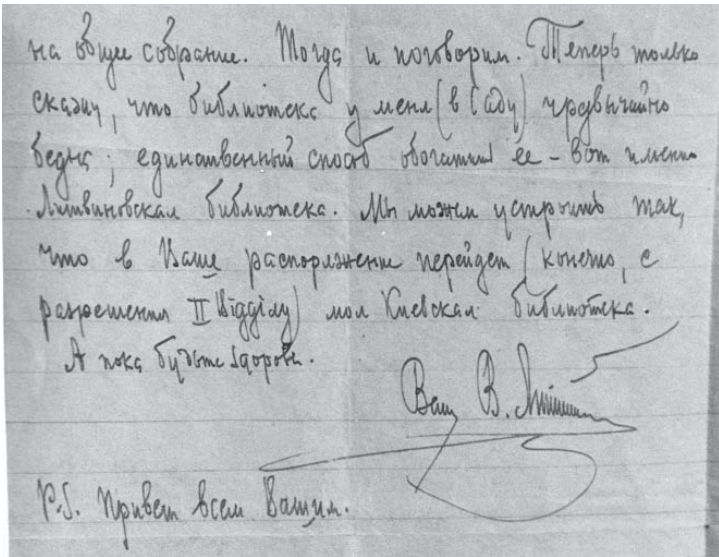 на общее собрание. Тогда и поговорим. Теперь только
скажу, что библиотека у меня (в Саду) чрезвычайно
бедна; единственный способ обогатить ее – вот именно
Литвиновская библиотека. Мы можем устроить так,
что в Ваше распоряжение перейдет (конечно, с
разрешения II Відділу) моя Киевская библиотека.
А пока будьте здоровы.
Ваш В.
P.S. Привет всем Вашим.